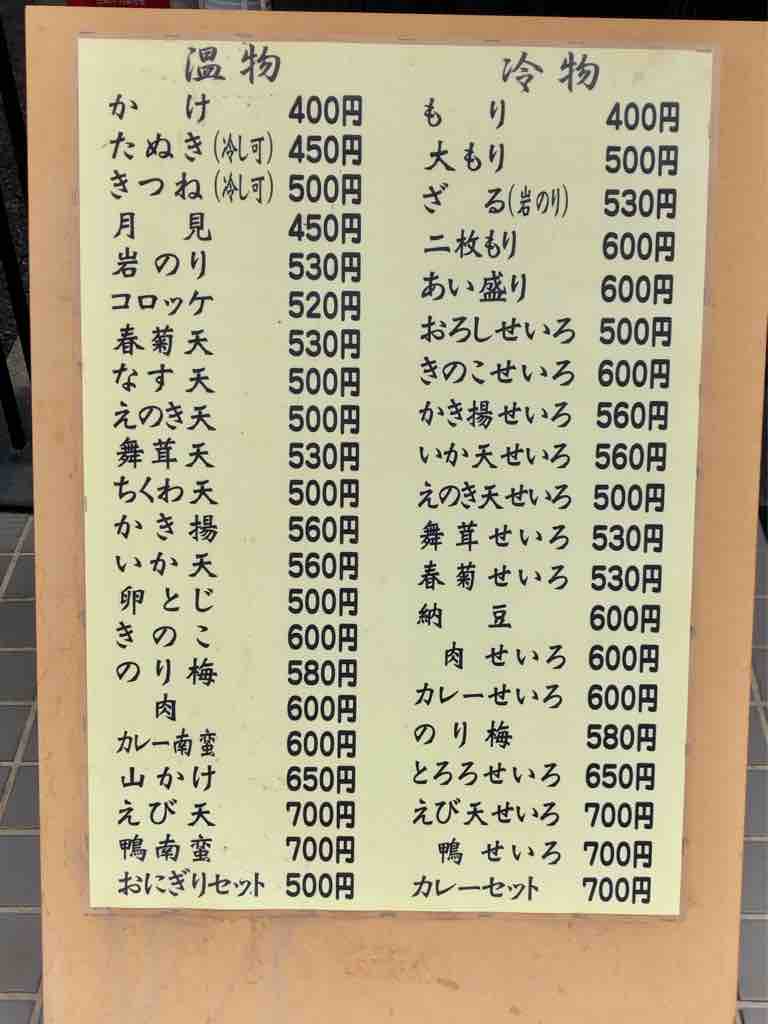 温物
かけ 400円
たぬき(冷し可) 450円
きつね(冷し可) 500円
月見 450円
岩のり 530円
コロッケ 520円
春菊天 530円
なす天 500円
えのき天 500円
舞茸天 530円
ちくわ天 500円
かき揚 560円
いか天 560円
卵とじ 500円
きのこ 600円
のり梅 580円
肉 600円
カレー南蛮 600円
山かけ 650円
えび天 700円
鴨南蛮 700円
おにぎりセット 500円
冷物
もり 400円
大もり 500円
ざる(岩のり) 530円
二枚もり 600円
あい盛り 600円
おろしせいろ 500円
きのこせいろ 600円
かき揚せいろ 560円
いか天せいろ 560円
えのき天せいろ 500円
舞茸せいろ 530円
春菊せいろ 530円
納豆 600円
肉せいろ 600円
カレーせいろ 600円
のり梅 580円
とろろせいろ 650円
えび天せいろ 700円
鴨せいろ 700円
カレーセット 700円